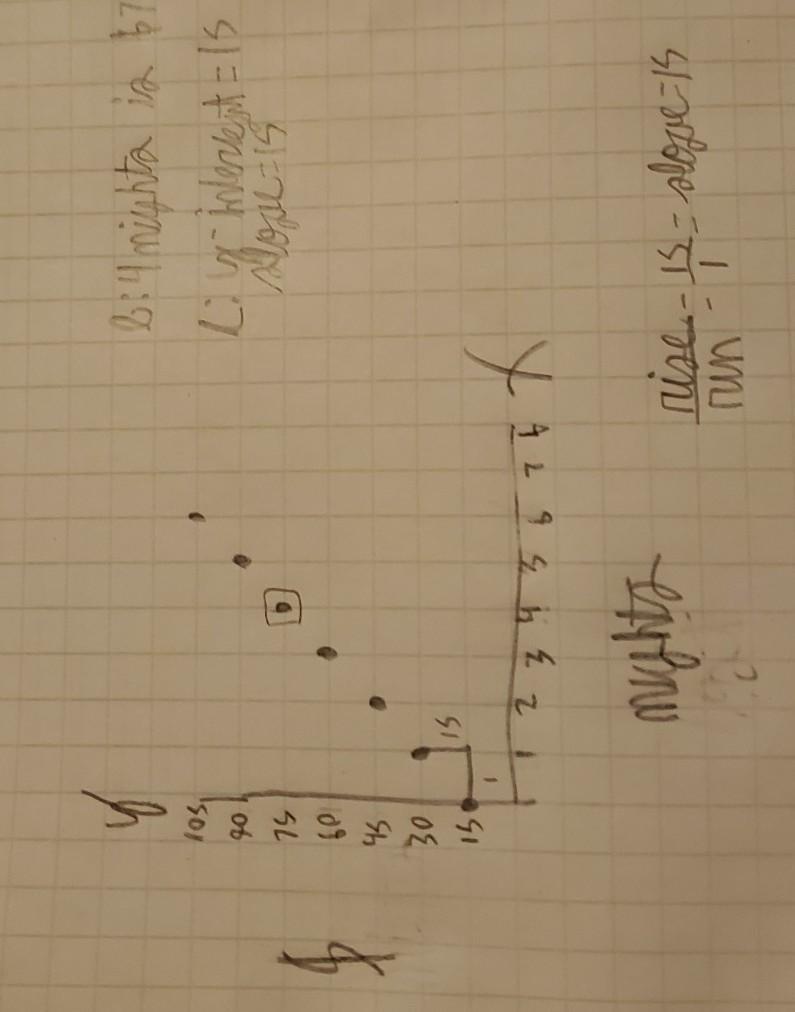 B: 4 nights is $7
C: y-intercept = 15
slope = 15
y
105
90
75
60
45
30
15
$
15
1
1 2 3 4 5 6 7
X
nights
rise = 15 = slope = 15
run = 1